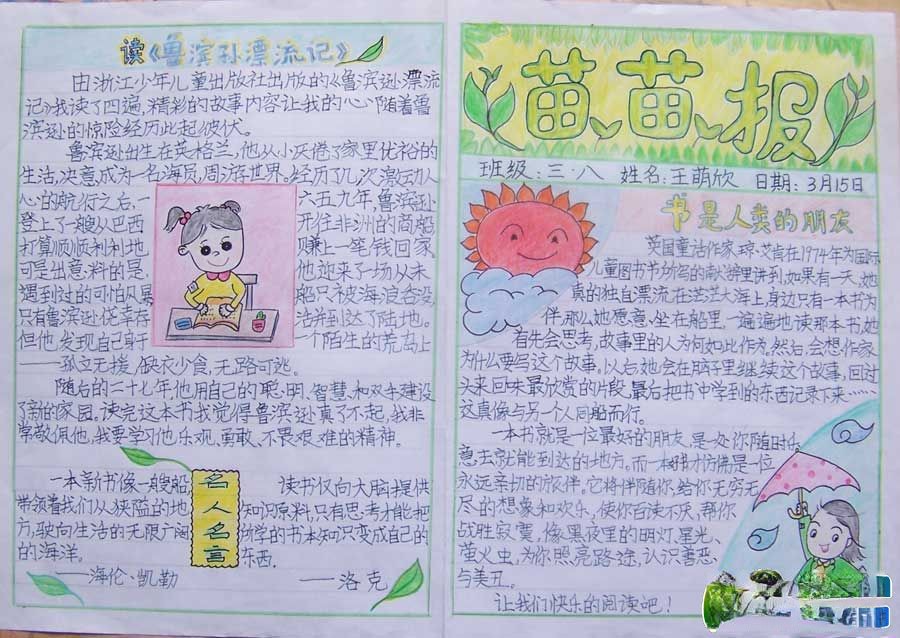 读《鲁滨孙漂流记》
由浙江少年儿童出版社出版的《鲁滨逊漂流
记》我读了四遍,精彩的故事内容让我的心随着鲁
滨逊的惊险经历此起彼伏。
鲁滨逊出生在英格兰,他从小厌倦了家里优裕的
生活,决意成为一名海员,周游世界。经历了几次激动人
心的航行之后,一六五九年,鲁滨逊
登上了一艘从巴西开往非洲的商船
打算顺顺利利地赚上一笔钱回家
可是出意料的是,他迎来了一场从未
遇到过的可怕风暴船只被海浪吞没,
只有鲁滨逊侥幸存活并到达了陆地。
但他发现自己身于一个陌生的荒岛上
——孤立无援,缺衣少食,无路可逃。
随后的二十七年他用自己的聪明、智慧和双手建设
了新的家园。读完这本书我觉得鲁滨逊真了不起,我非
常敬佩他,我要学习他乐观、勇敢、不畏艰难的精神。
一本新书像一艘船
带领着我们从狭隘的地
方,驶向生活的无限广阔
的海洋。
——海伦·凯勒
名人名言
读书仅向大脑提供
知识原料,只有思考才能把
所学的书本知识变成自己的
东西。
——洛克
苗苗报
班级:三·八 姓名:王萌欣 日期:3月15日
书是人类的朋友
英国童话作家琼·艾肯在1974年为国际
儿童图书节所写的献辞里讲到,如果有一天,她
真的独自漂流在茫茫大海上,身边只有一本书为
伴,那么她愿意坐在船里,一遍遍地读那本书,她
首先会思考,故事里的人为何如此作为。然后,会想作家
为什么要写这个故事,以后她会在脑子里继续这个故事,回过
头来回味最欣赏的片段,最后把书中学到的东西记录下来……
这真像与另一个人同船而行。
一本书就是一位最好的朋友,是一处你随时乐
意去就能到达的地方。而一本书才仿佛是一位
永远亲切的旅伴。它将伴随你,给你无穷无
尽的想象和欢乐,使你百读不厌,帮你
战胜寂寞,像黑夜里的明灯、星光、
萤火虫,为你照亮路途,认识善恶
与美丑。
让我们快乐的阅读吧!